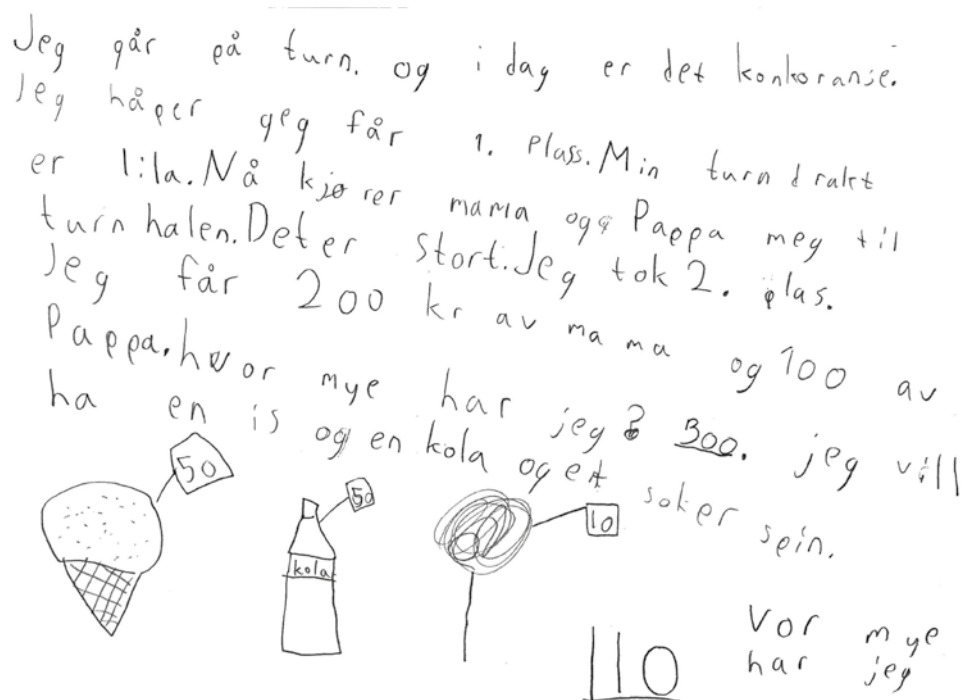 Jeg går på turn. og i dag er det konkoranse.
Jeg håper geg får 1. Plass. Min turn drakt
er lila. Nå kjører mama og Pappa meg til
turn halen. Det er stort. Jeg tok 2. plas.
Jeg får 200 kr av mama og 100 av
Pappa. hvor mye har jeg? 300. jeg vill
ha en is og en kola og et soker spin.
50
50
10
kola
110
Vor mye
har jeg